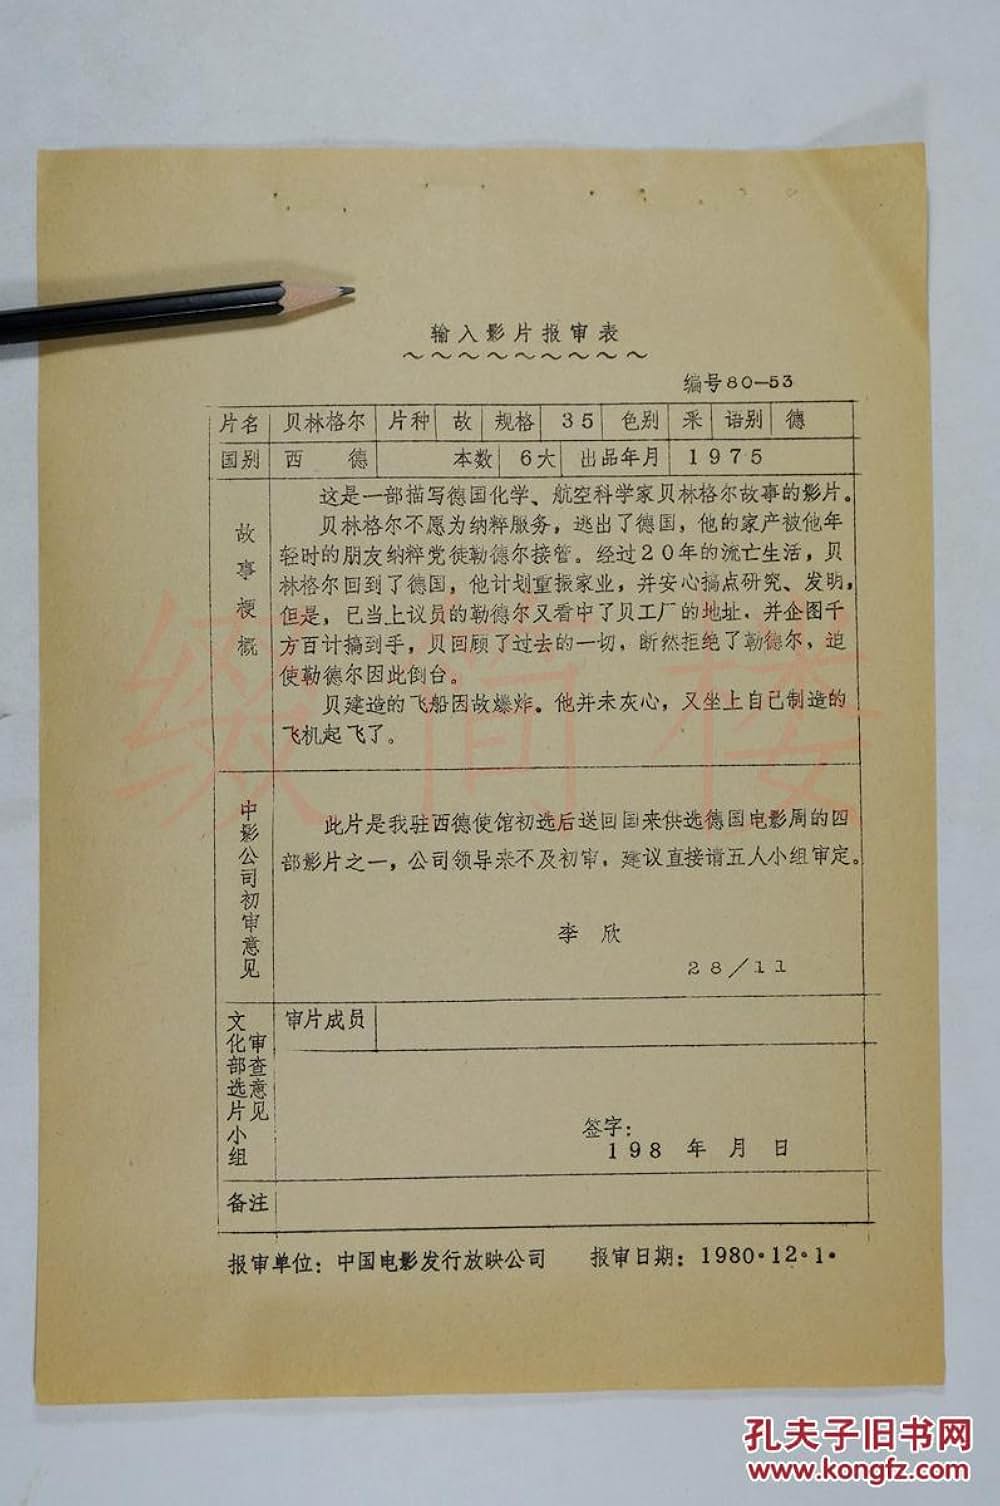 输入影片报审表
～～～～～～～～～
编号80—53
片名 贝林格尔 片种 故 规格 35 色别 采 语别 德
国别 西 德 本数 6大 出品年月 1975
故事梗概
这是一部描写德国化学、航空科学家贝林格尔故事的影片。
贝林格尔不愿为纳粹服务，逃出了德国，他的家产被他年
轻时的朋友纳粹党徒勒德尔接管。经过20年的流亡生活，贝
林格尔回到了德国，他计划重振家业，并安心搞点研究、发明，
但是，已当上议员的勒德尔又看中了贝工厂的地址，并企图千
方百计搞到手，贝回顾了过去的一切，断然拒绝了勒德尔，迫
使勒德尔因此倒台。
贝建造的飞船因故爆炸。他并未灰心，又坐上自己制造的
飞机起飞了。
中影公司初审意见
此片是我驻西德使馆初选后送回国来供选德国电影周的四
部影片之一，公司领导来不及初审，建议直接请五人小组审定。
李 欣
28/11
文化部选片小组
审查意见
审片成员
签字：
198 年 月 日
备注
报审单位：中国电影发行放映公司 报审日期：1980·12·1·
缀简楼
孔夫子旧书网
www.kongfz.com